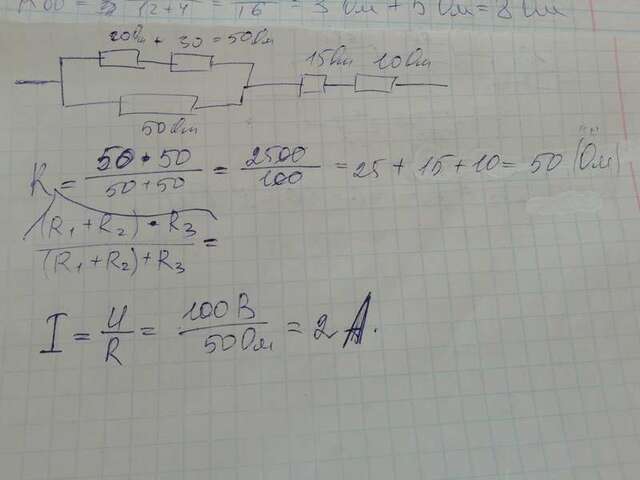 12+4 16 = 3 Ом + 5 Ом = 8 Ом
20Ом + 30 = 50Ом
15Ом 10Ом
50Ом
R = 50 • 50 / 50+50 = 2500 / 100 = 25 + 15 + 10 = 50 (Ом)
(R₁+R₂) • R₃ / (R₁+R₂)+R₃ =
I = U / R = 100В / 50Ом = 2 А.